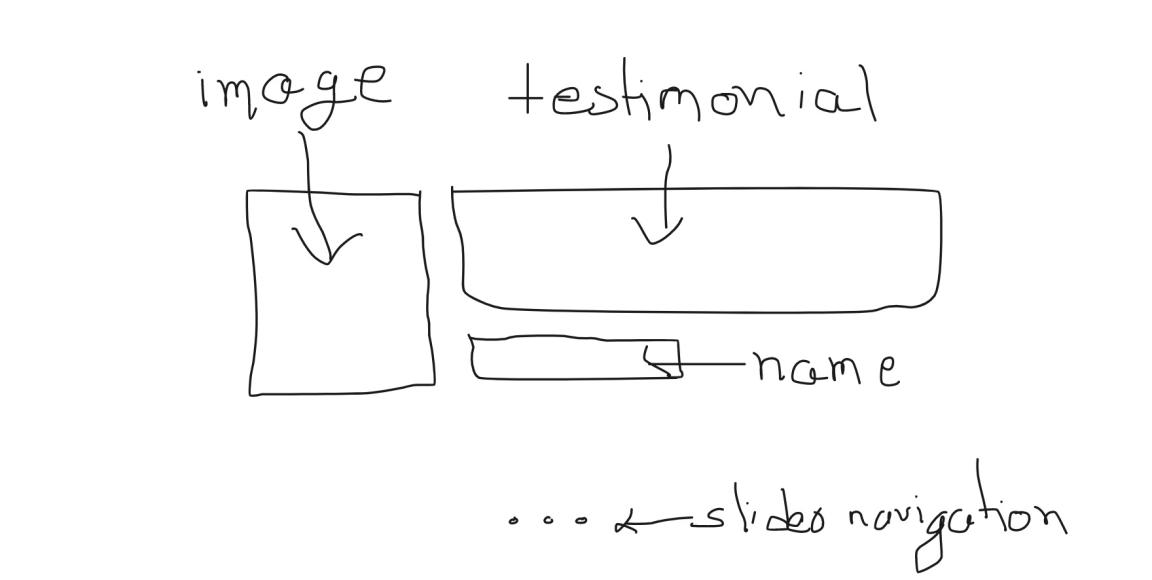 image testimonial
name
slides navigation